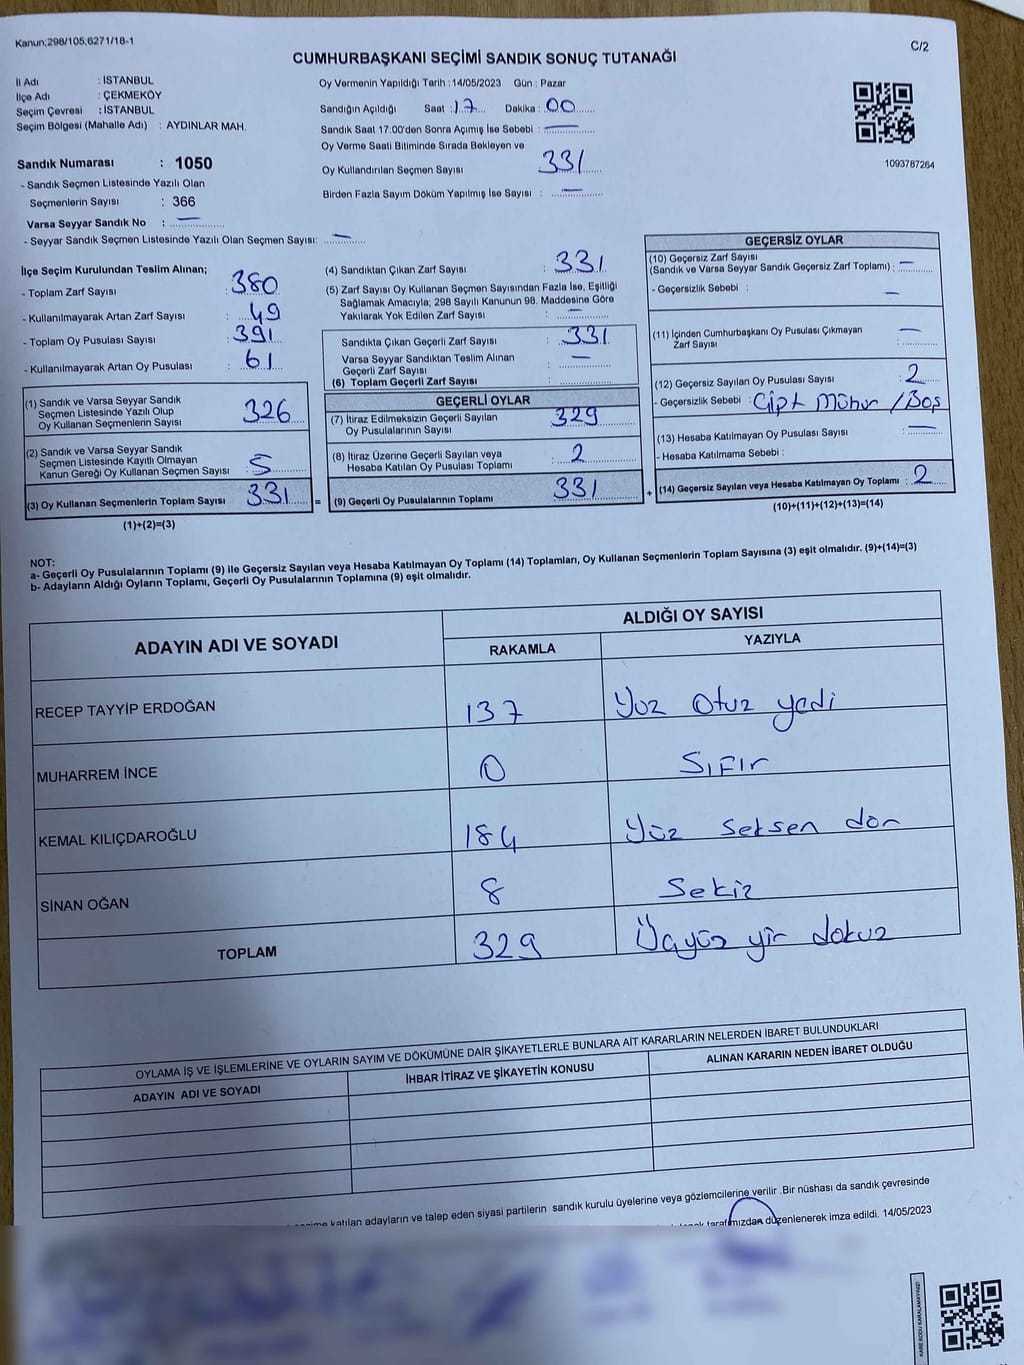 Kanun;298/105,6271/18-1
C/2
CUMHURBAŞKANI SEÇİMİ SANDIK SONUÇ TUTANAĞI
İl Adı : İSTANBUL
İlçe Adı : ÇEKMEKÖY
Seçim Çevresi : İSTANBUL
Seçim Bölgesi (Mahalle Adı) : AYDINLAR MAH.
Sandık Numarası : 1050
- Sandık Seçmen Listesinde Yazılı Olan
Seçmenlerin Sayısı : 366
Varsa Seyyar Sandık No : —
- Seyyar Sandık Seçmen Listesinde Yazılı Olan Seçmen Sayısı: —
Oy Vermenin Yapıldığı Tarih : 14/05/2023 Gün : Pazar
Sandığın Açıldığı Saat : 17 Dakika : 00
Sandık Saat 17:00'den Sonra Açımış İse Sebebi : —
Oy Verme Saati Bitiminde Sırada Bekleyen ve
Oy Kullandırılan Seçmen Sayısı 331
Birden Fazla Sayım Döküm Yapılmış İse Sayısı : —
1093787264
İlçe Seçim Kurulundan Teslim Alınan;
- Toplam Zarf Sayısı : 380
- Kullanılmayarak Artan Zarf Sayısı : 49
- Toplam Oy Pusulası Sayısı : 391
- Kullanılmayarak Artan Oy Pusulası : 61
(1) Sandık ve Varsa Seyyar Sandık
Seçmen Listesinde Yazılı Olup
Oy Kullanan Seçmenlerin Sayısı : 326
(2) Sandık ve Varsa Seyyar Sandık
Seçmen Listesinde Kayıtlı Olmayan
Kanun Gereği Oy Kullanan Seçmen Sayısı : 5
(3) Oy Kullanan Seçmenlerin Toplam Sayısı : 331
(1)+(2)=(3)
(4) Sandıktan Çıkan Zarf Sayısı : 331
(5) Zarf Sayısı Oy Kullanan Seçmen Sayısından Fazla İse, Eşitliği
Sağlamak Amacıyla; 298 Sayılı Kanunun 98. Maddesine Göre
Yakılarak Yok Edilen Zarf Sayısı : —
Sandıkta Çıkan Geçerli Zarf Sayısı : 331
Varsa Seyyar Sandıktan Teslim Alınan
Geçerli Zarf Sayısı : —
(6) Toplam Geçerli Zarf Sayısı :
GEÇERLİ OYLAR
(7) İtiraz Edilmeksizin Geçerli Sayılan
Oy Pusulalarının Sayısı : 329
(8) İtiraz Üzerine Geçerli Sayılan veya
Hesaba Katılan Oy Pusulası Toplamı : 2
= (9) Geçerli Oy Pusulalarının Toplamı : 331
GEÇERSİZ OYLAR
(10) Geçersiz Zarf Sayısı
(Sandık ve Varsa Seyyar Sandık Geçersiz Zarf Toplamı) : —
- Geçersizlik Sebebi : —
(11) İçinden Cumhurbaşkanı Oy Pusulası Çıkmayan
Zarf Sayısı : —
(12) Geçersiz Sayılan Oy Pusulası Sayısı : 2
- Geçersizlik Sebebi : Çipt Mühür / Boş
(13) Hesaba Katılmayan Oy Pusulası Sayısı : —
- Hesaba Katılmama Sebebi :
+ (14) Geçersiz Sayılan veya Hesaba Katılmayan Oy Toplamı : 2
(10)+(11)+(12)+(13)=(14)
NOT:
a- Geçerli Oy Pusulalarının Toplamı (9) ile Geçersiz Sayılan veya Hesaba Katılmayan Oy Toplamı (14) Toplamları, Oy Kullanan Seçmenlerin Toplam Sayısına (3) eşit olmalıdır. (9)+(14)=(3)
b- Adayların Aldığı Oyların Toplamı, Geçerli Oy Pusulalarının Toplamına (9) eşit olmalıdır.
ADAYIN ADI VE SOYADI
ALDIĞI OY SAYISI
RAKAMLA YAZIYLA
RECEP TAYYİP ERDOĞAN 137 Yüz Otuz yedi
MUHARREM İNCE 0 Sıfır
KEMAL KILIÇDAROĞLU 184 Yüz Seksen dör
SİNAN OĞAN 8 Sekiz
TOPLAM 329 Üçyüz yir dokuz
OYLAMA İŞ VE İŞLEMLERİNE VE OYLARIN SAYIM VE DÖKÜMÜNE DAİR ŞİKAYETLERLE BUNLARA AİT KARARLARIN NELERDEN İBARET BULUNDUKLARI
ADAYIN ADI VE SOYADI İHBAR İTİRAZ VE ŞİKAYETİN KONUSU ALINAN KARARIN NEDEN İBARET OLDUĞU
katılan adayların ve talep eden siyasi partilerin sandık kurulu üyelerine veya gözlemcilerine verilir .Bir nüshası da sandık çevresinde
tarafımızdan düzenlenerek imza edildi. 14/05/2023
KARE KODU KARALAMAYINIZ!